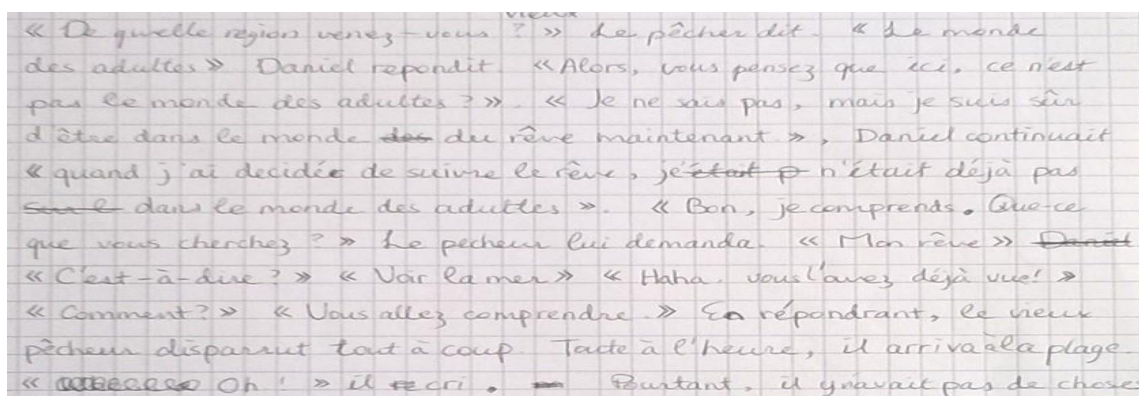 vieux
« De quelle region venez-vous ? » Le pêcher dit. « Le monde
des adultes » Daniel repondit «Alors, vous pensez que ici, ce n'est
pas le monde des adultes ? ». « Je ne sais pas, mais je suis sûr
d'être dans le monde des du rêve maintenant », Daniel continuait
« quand j'ai decidée de suivre le rêve, je n'était déjà pas
dans le monde des adultes ». « Bon, je comprends. Que-ce
que vous cherchez ? » Le pecheur lui demanda. « Mon rêve » Daniel
« C'est-à-dire ? » « Voir la mer » « Haha. vous l'avez déjà vue! »
« Comment? » « Vous allez comprendre. » En répondrant, le vieux
pêcheur disparut tout à coup. Toute à l'heure, il arriva à la plage
« Oh ! » il cri. Pourtant, il y n'avait pas de choses